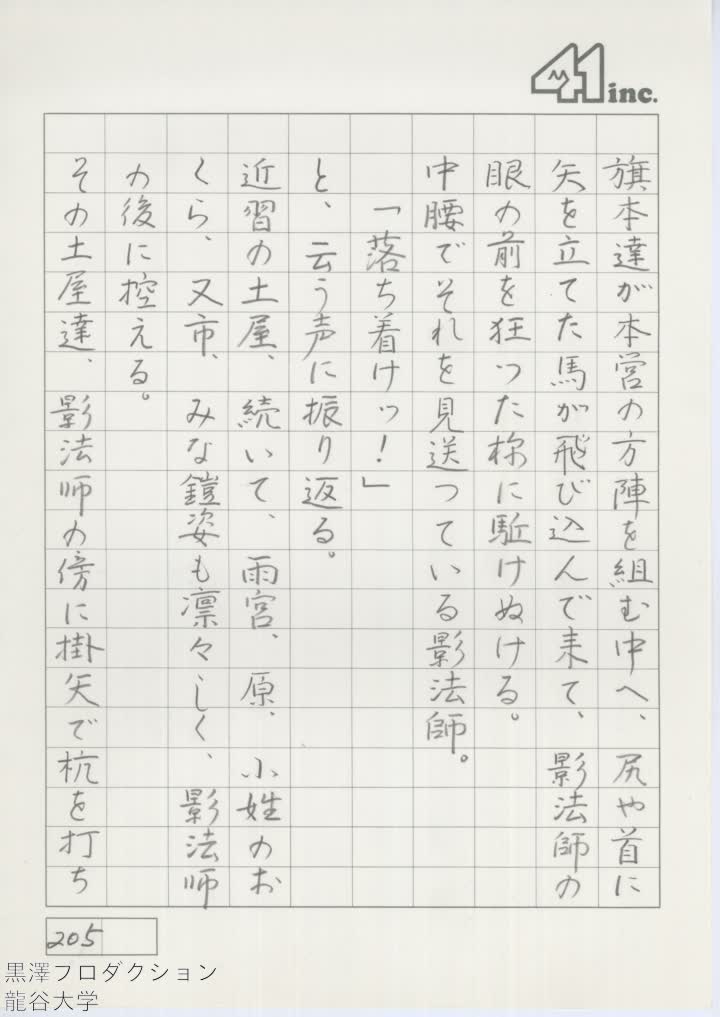 41 inc.
旗本達が本営の方陣を組む中へ、尻や首に
矢を立てた馬が飛び込んで来て、影法師の
眼の前を狂った様に駈けぬける。
中腰でそれを見送っている影法師。
「落ち着けッ!」
と、云う声に振り返る。
近習の土屋、続いて、雨宮、原、小姓のお
くら、又市、みな鎧姿も凛々しく、影法師
の後に控える。
その土屋達、影法師の傍に掛矢で杭を打ち
205
黒澤プロダクション
龍谷大学